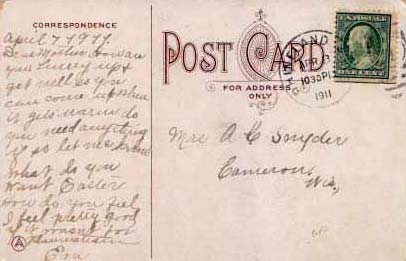 CORRESPONDENCE
April 7 1911
Dear Mother How are
you hurry up &
get well so you
can come up when
it gets warm do
you need anything
if so let me know
What do you
want Easter
How do you feel
I feel pretty good
if it wasnt for
Rheumatism
Eva
POST CARD
FOR ADDRESS
ONLY
RHINELAND
APR
1030P
1911
Mrs A C Snyder
Cameron,
Wis,
A